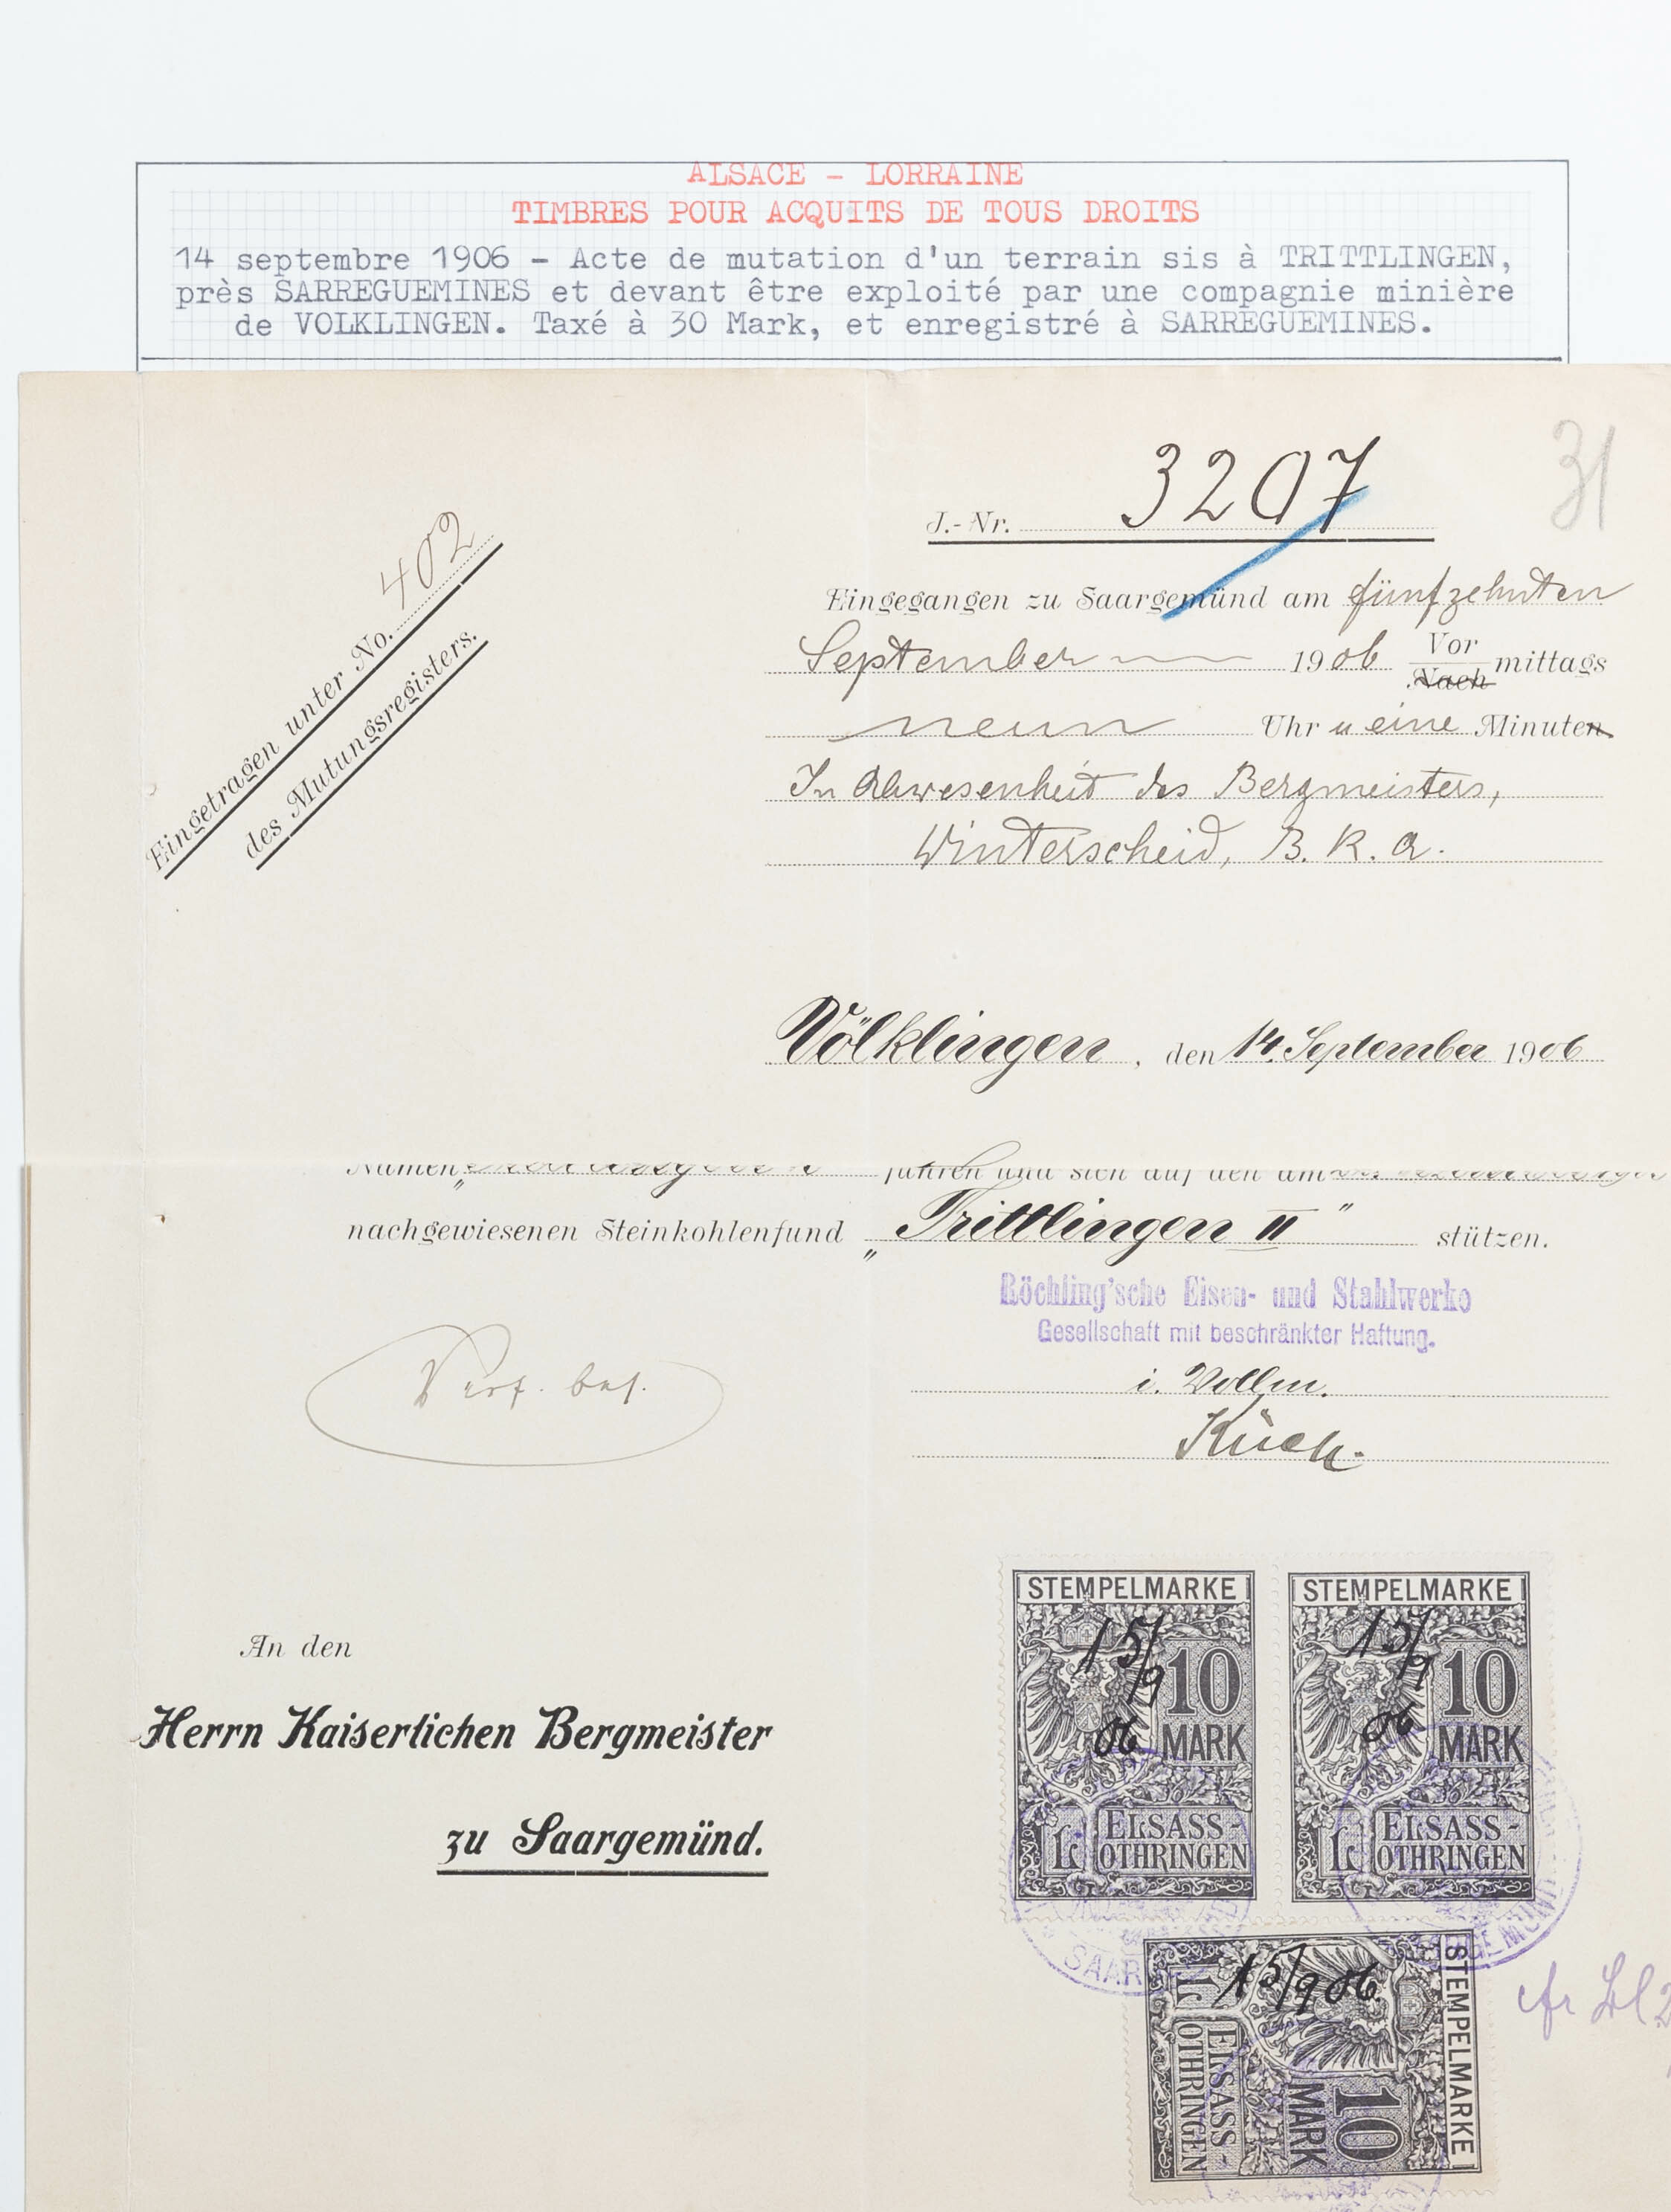 ALSACE - LORRAINE
TIMBRES POUR ACQUITS DE TOUS DROITS
14 septembre 1906 - Acte de mutation d'un terrain sis à TRITTLINGEN,
près SARREGUEMINES et devant être exploité par une compagnie minière
de VOLKLINGEN. Taxé à 30 Mark, et enregistré à SARREGUEMINES.
31
J.-Nr. 3207
Eingetragen unter No. 402
des Mutungsregisters.
Eingegangen zu Saargemünd am fünfzehnten
September 1906 Vor
Nach mittags
neun Uhr u eine Minuten
In Abwesenheit des Bergmeisters,
Winterscheid, B. R. a.
Völklingen, den 14. September 1906
Namen führen und sich auf den am
nachgewiesenen Steinkohlenfund „Trittlingen II" stützen.
Röchling'sche Eisen- und Stahlwerke
Gesellschaft mit beschränkter Haftung.
i. Vollm.
Küch.
An den
Herrn Kaiserlichen Bergmeister
zu Saargemünd.
STEMPELMARKE
15/9
06
10
MARK
ELSASS-
LOTHRINGEN
STEMPELMARKE
15/9
06
10
MARK
ELSASS-
LOTHRINGEN
STEMPELMARKE
15/9 06.
10
MARK
ELSASS-
LOTHRINGEN